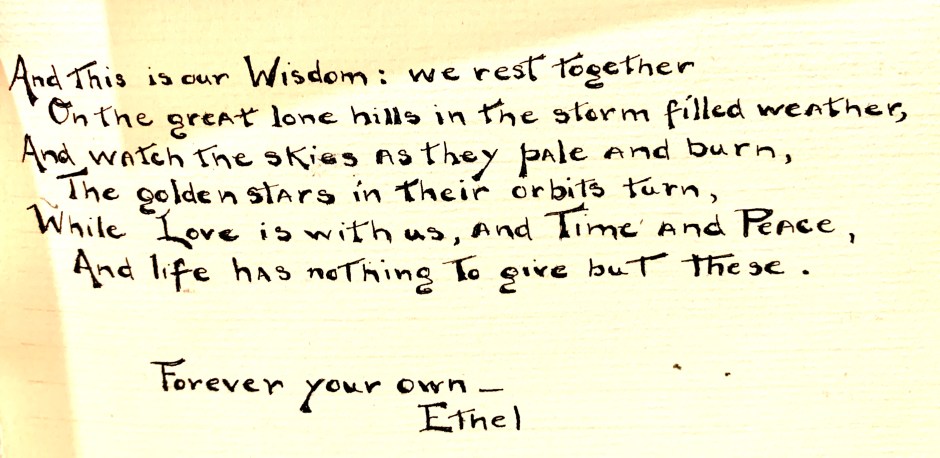 And This is our Wisdom: we rest together
On the great lone hills in the storm filled weather,
And watch the skies as they pale and burn,
The golden stars in their orbits turn,
While Love is with us, and Time and Peace,
And life has nothing to give but these.
Forever your own —
Ethel